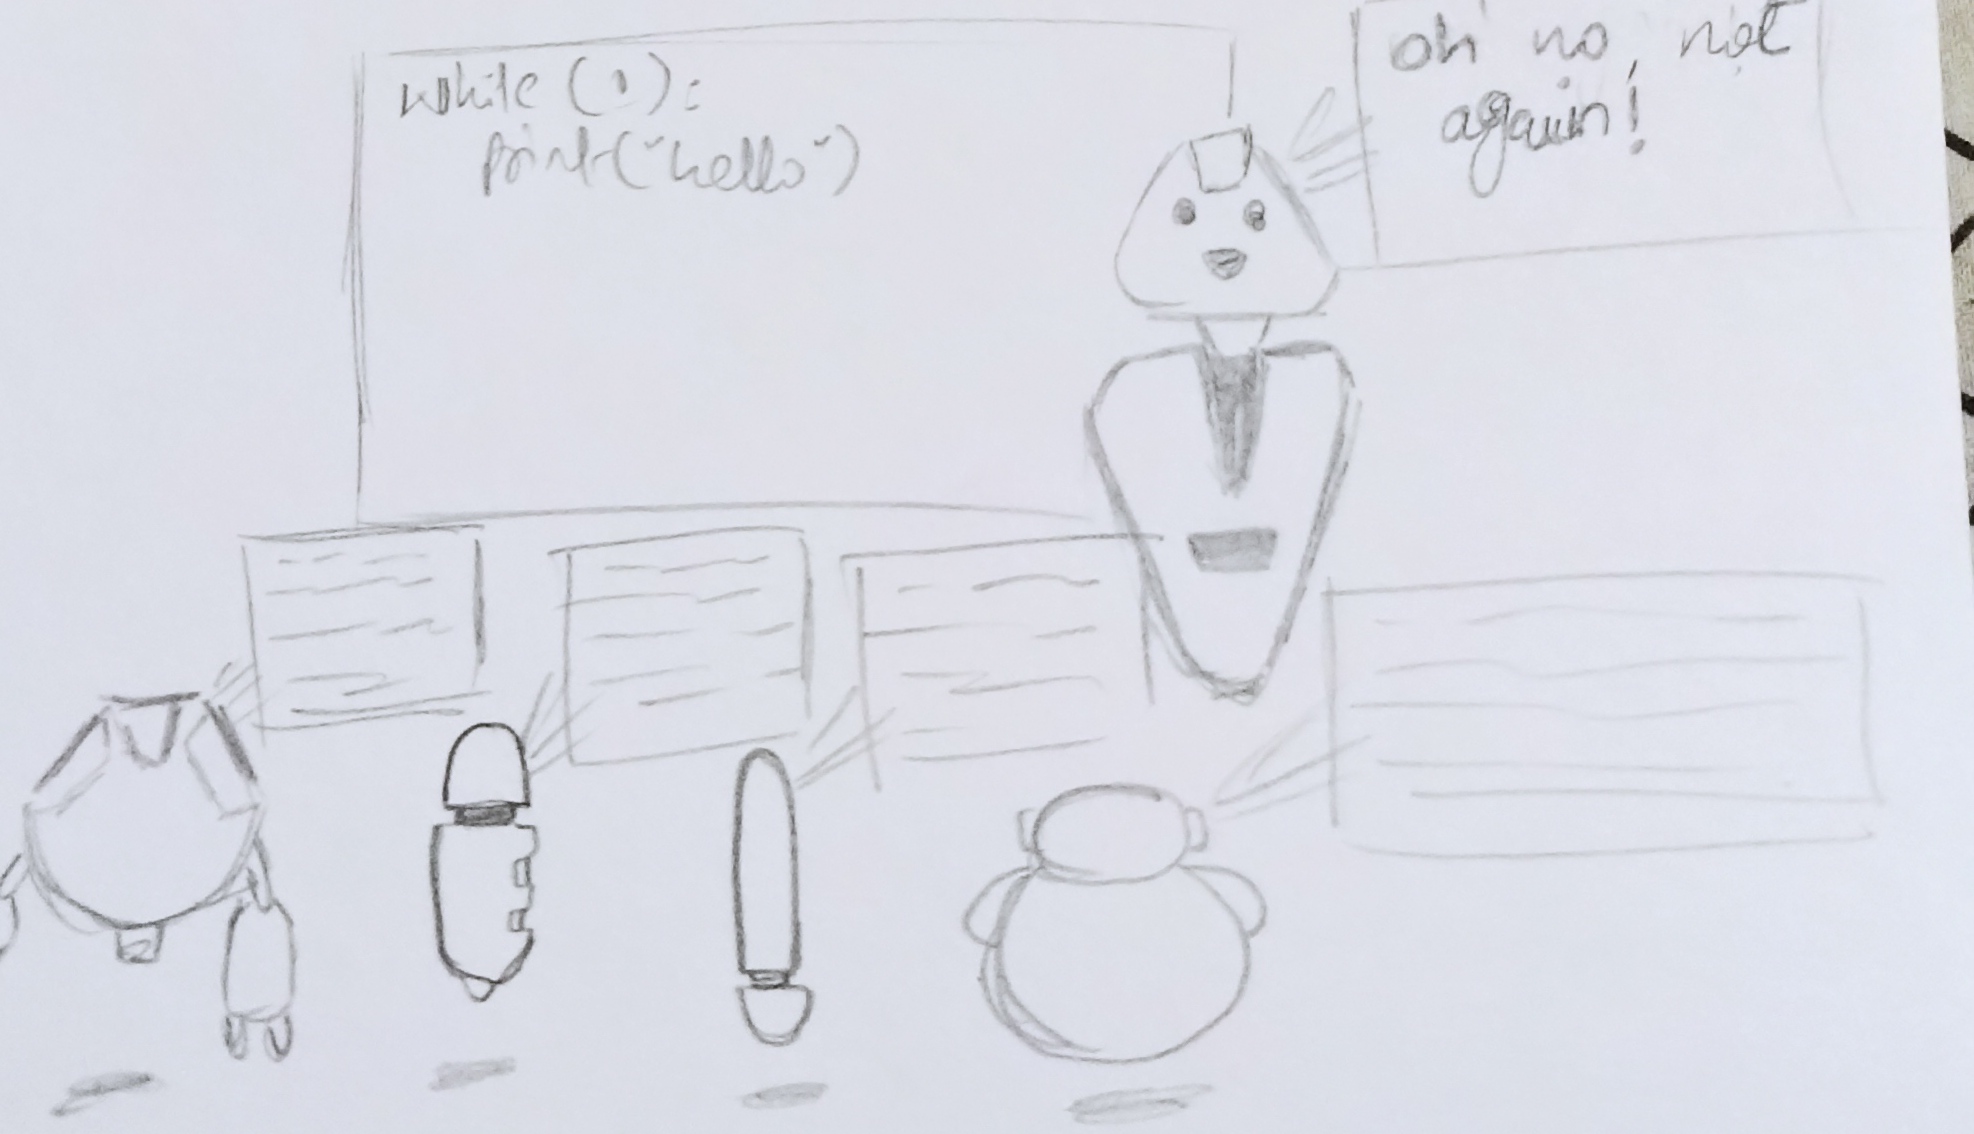 while (1):
print("hello")
oh no, not
again!